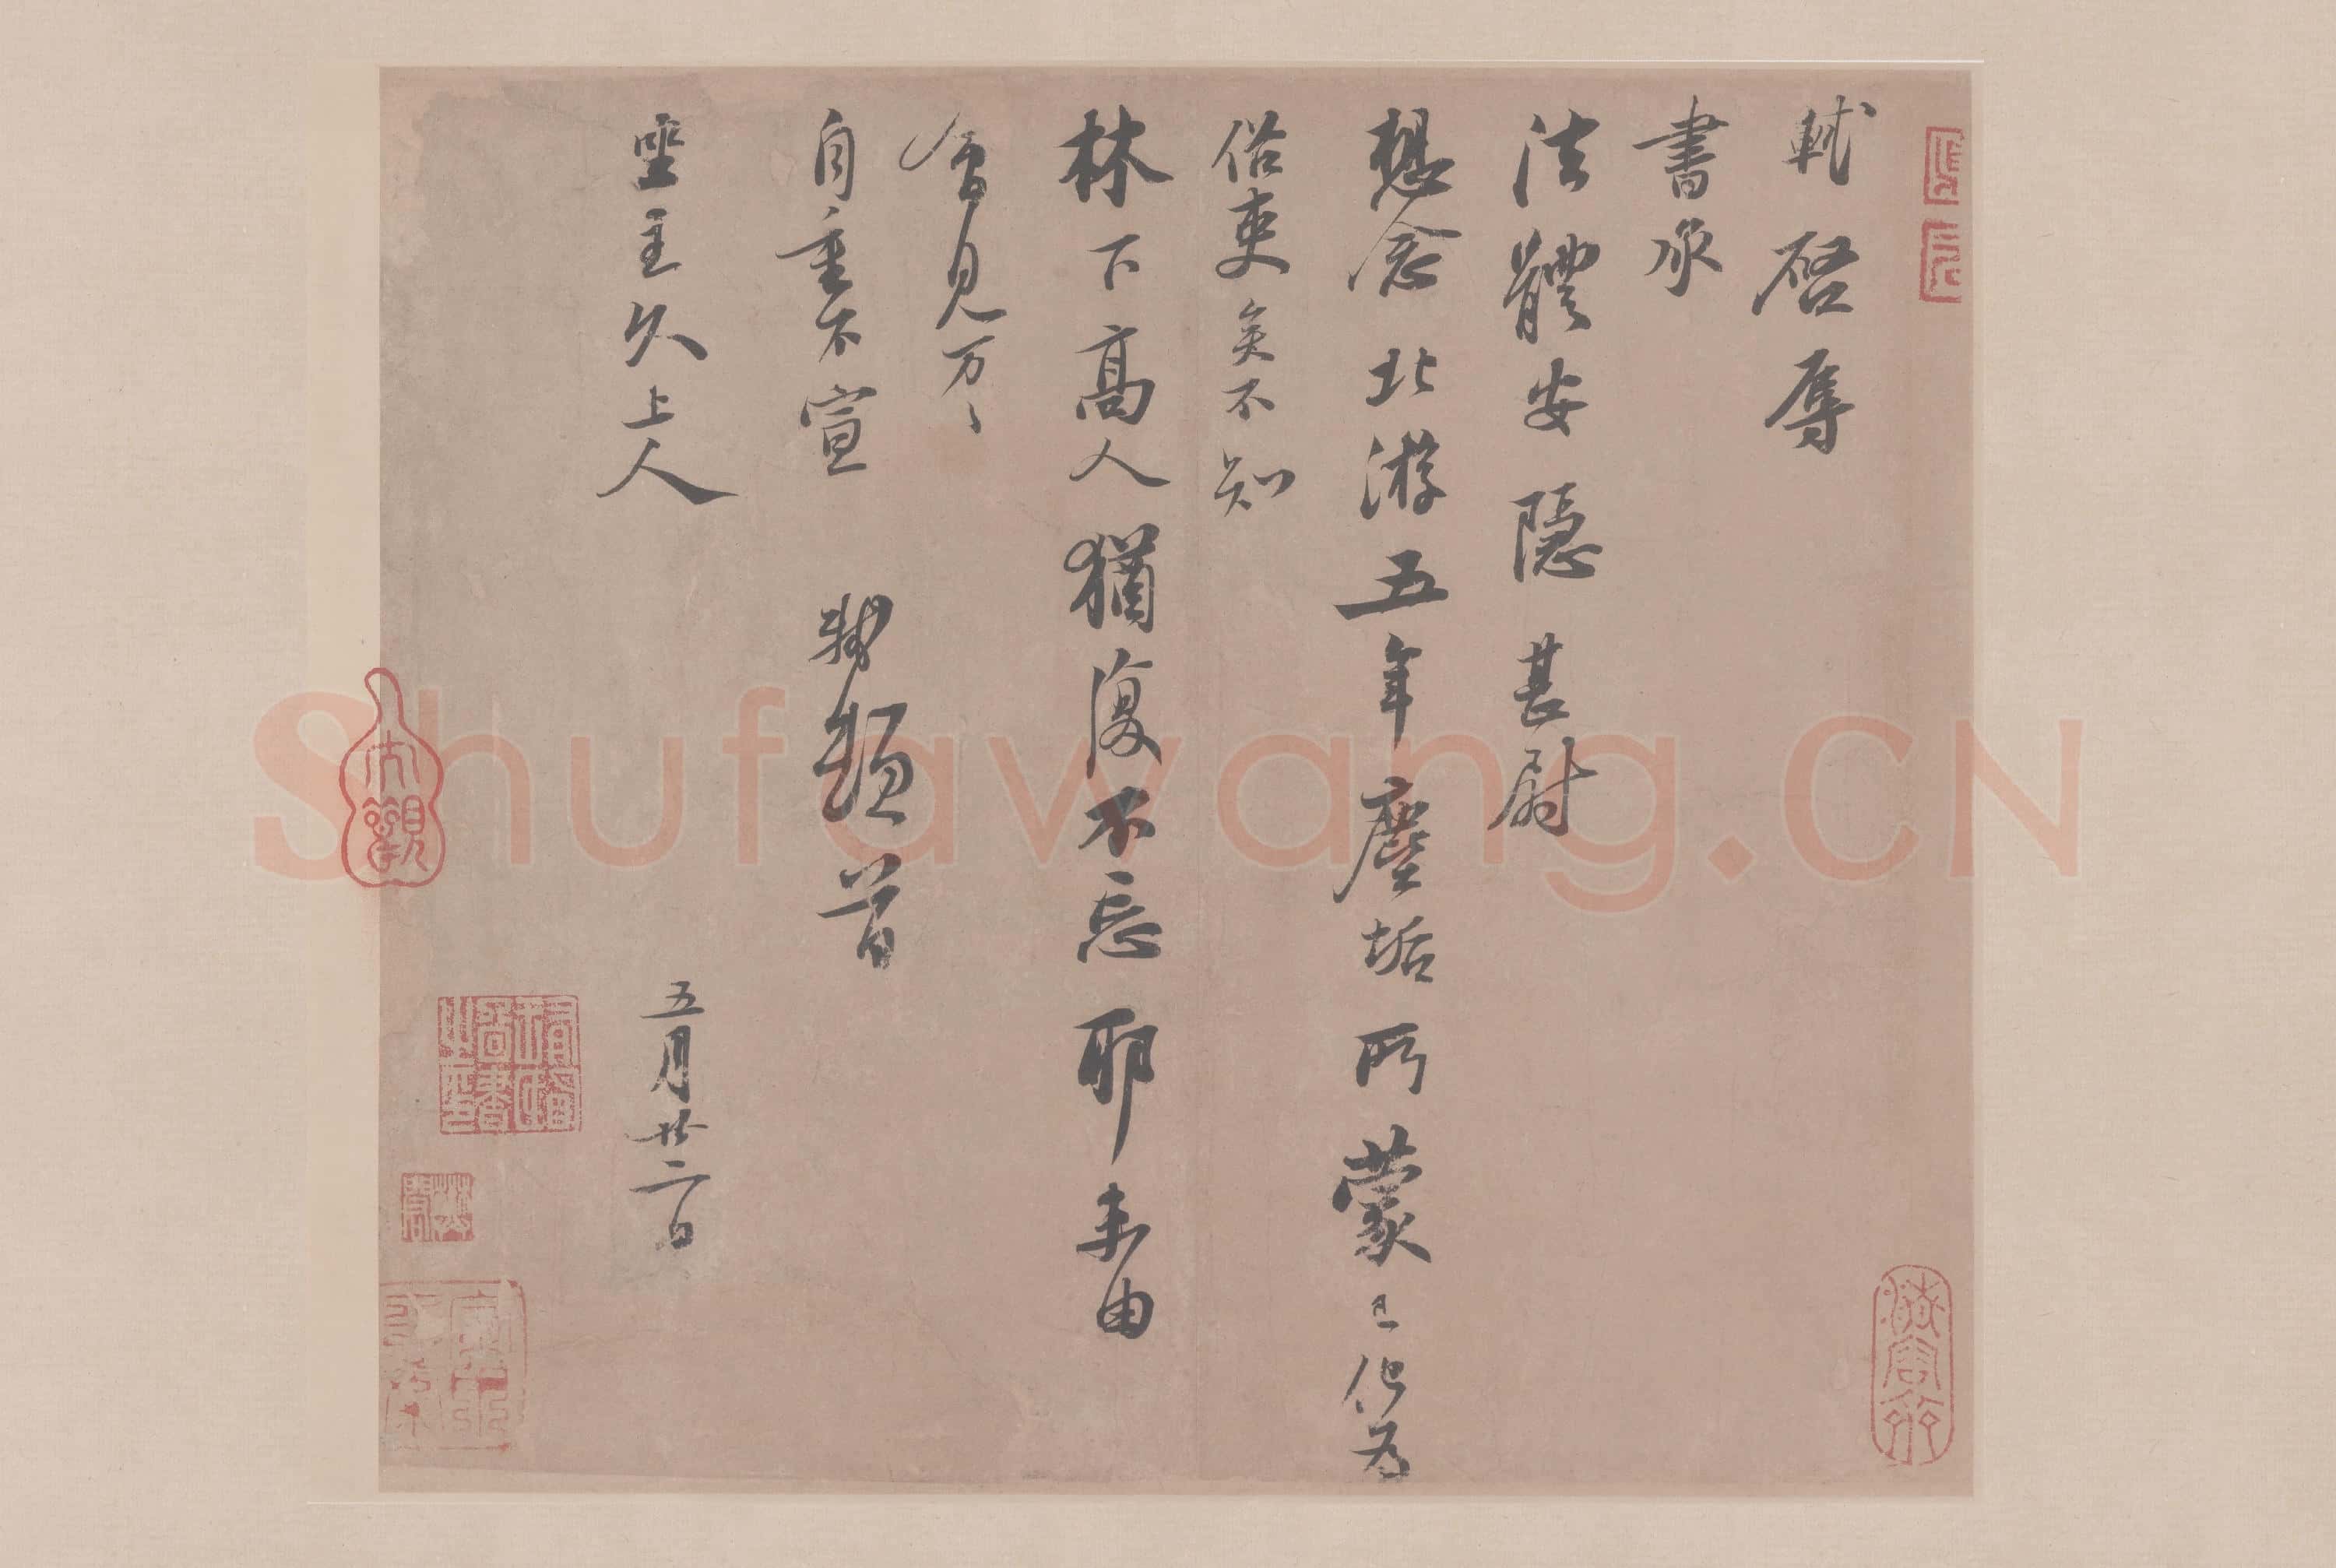 軾啓辱
書承
法體安隱甚尉
想念北游五年塵垢所蒙已化為
俗吏矣不知
林下高人猶復不忘耶未由
會見万〻
自重不宣 軾頓首
坐主久上人 五月廿二日
大觀
Shufawang.CN